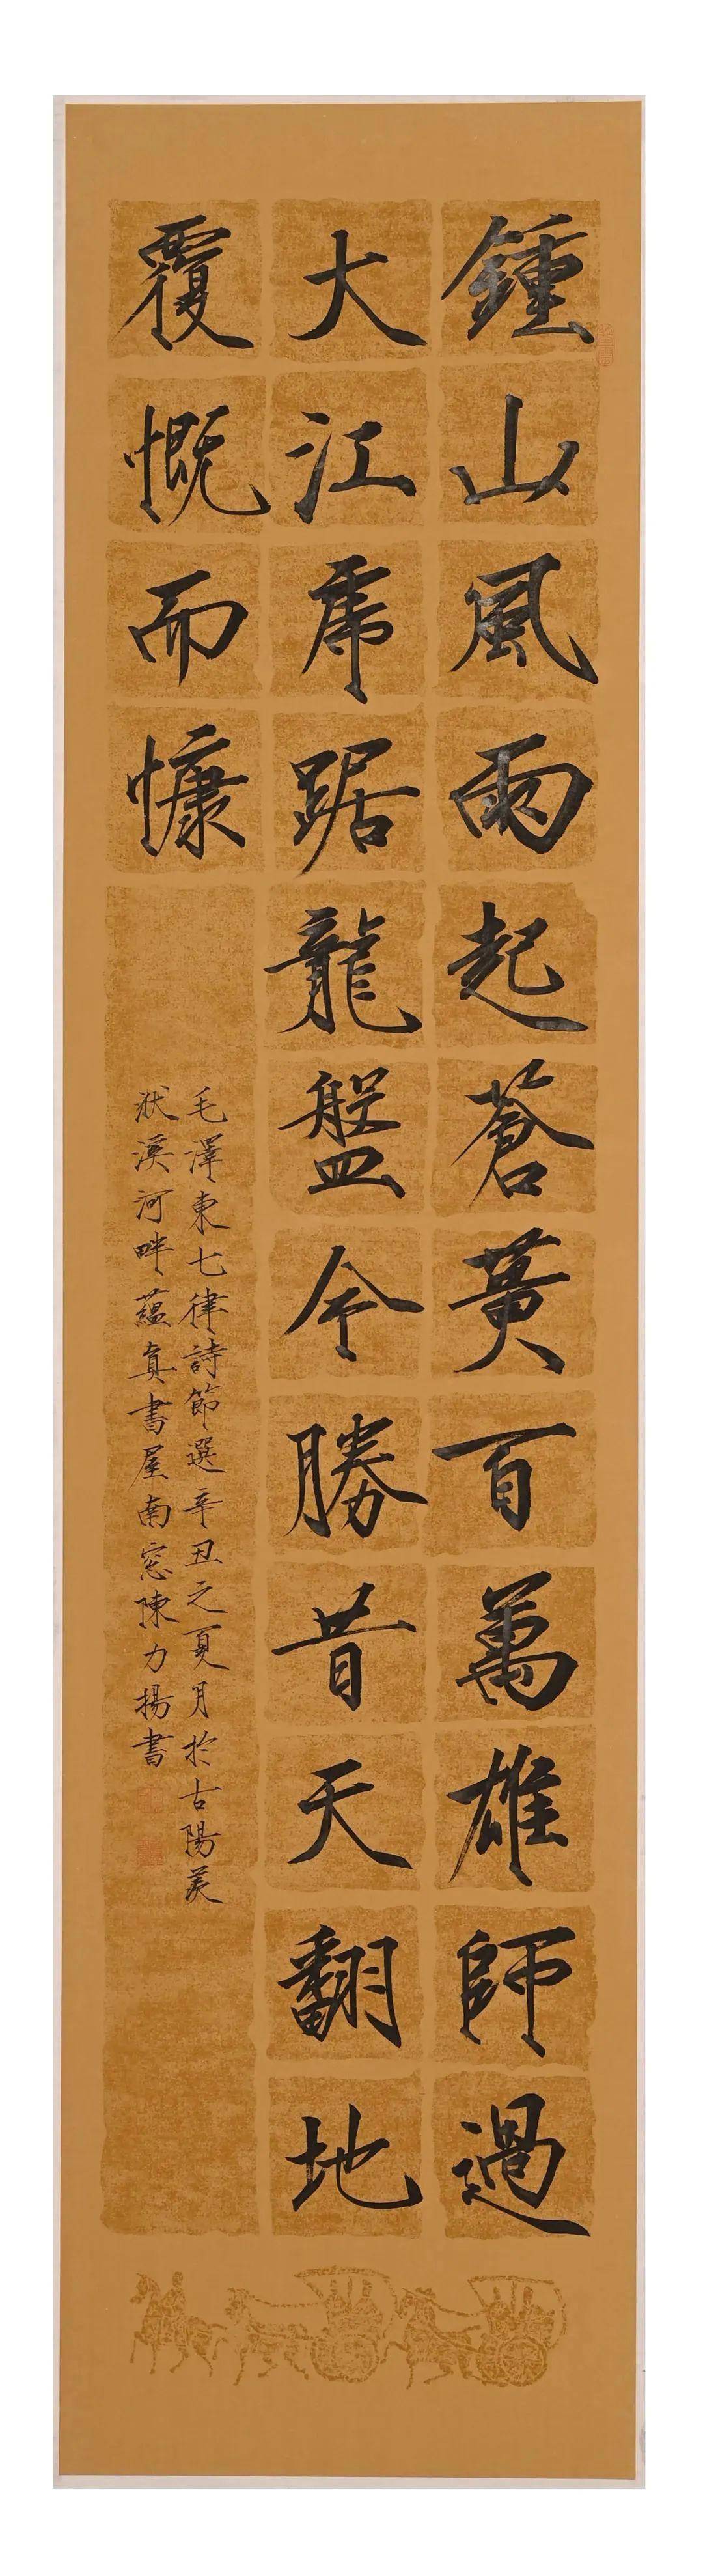 鍾山風雨起蒼黄百萬雄師過
大江虎踞龍盤今勝昔天翻地
覆慨而慷
毛澤東七律詩節選辛丑之夏月於古陽羨
洑溪河畔蘊真書屋南窓陳力揚書